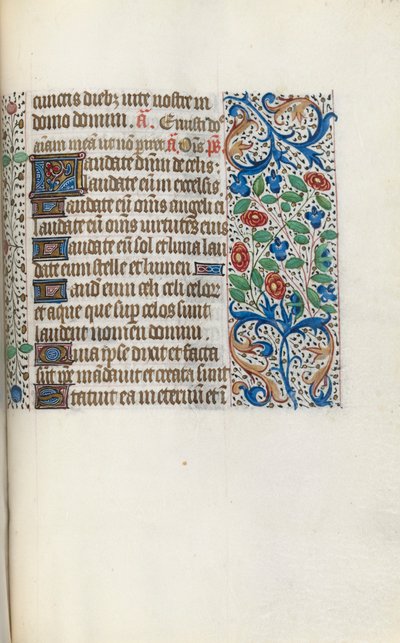 cunctis dieb; vite nostre in
domo domini. a. Eruisti do
aiam meā ut nō piret. a. Oīs ps
Laudate dn̄m de celis
laudate eū in excelsis
Laudate eū oms angeli ei
laudate eū oms virtutes eius
Laudate eū sol et luna lau
date eum stelle et lumen
Laud eum celi celorꝝ
et aque que sup celos sunt
laudent nomen domini
Quia ipse dixit et facta
sūt ipe mādauit et creata sunt
Statuit ea in eternū et i